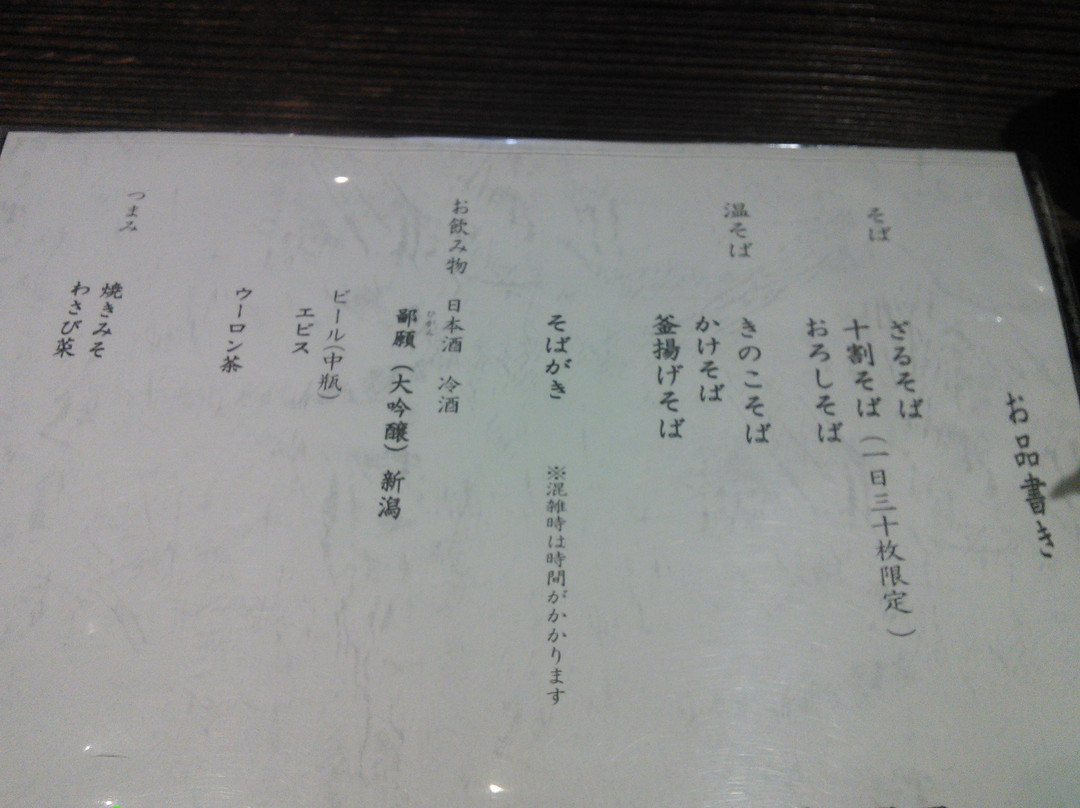 お品書き
そば
ざるそば
十割そば（一日三十枚限定）
おろしそば
温そば
きのこそば
かけそば
釜揚げそば
そばがき ※混雑時は時間がかかります
お飲み物 日本酒 冷酒
鄙願（大吟醸）新潟
ビール（中瓶）
エビス
ウーロン茶
つまみ
焼きみそ
わさび菜